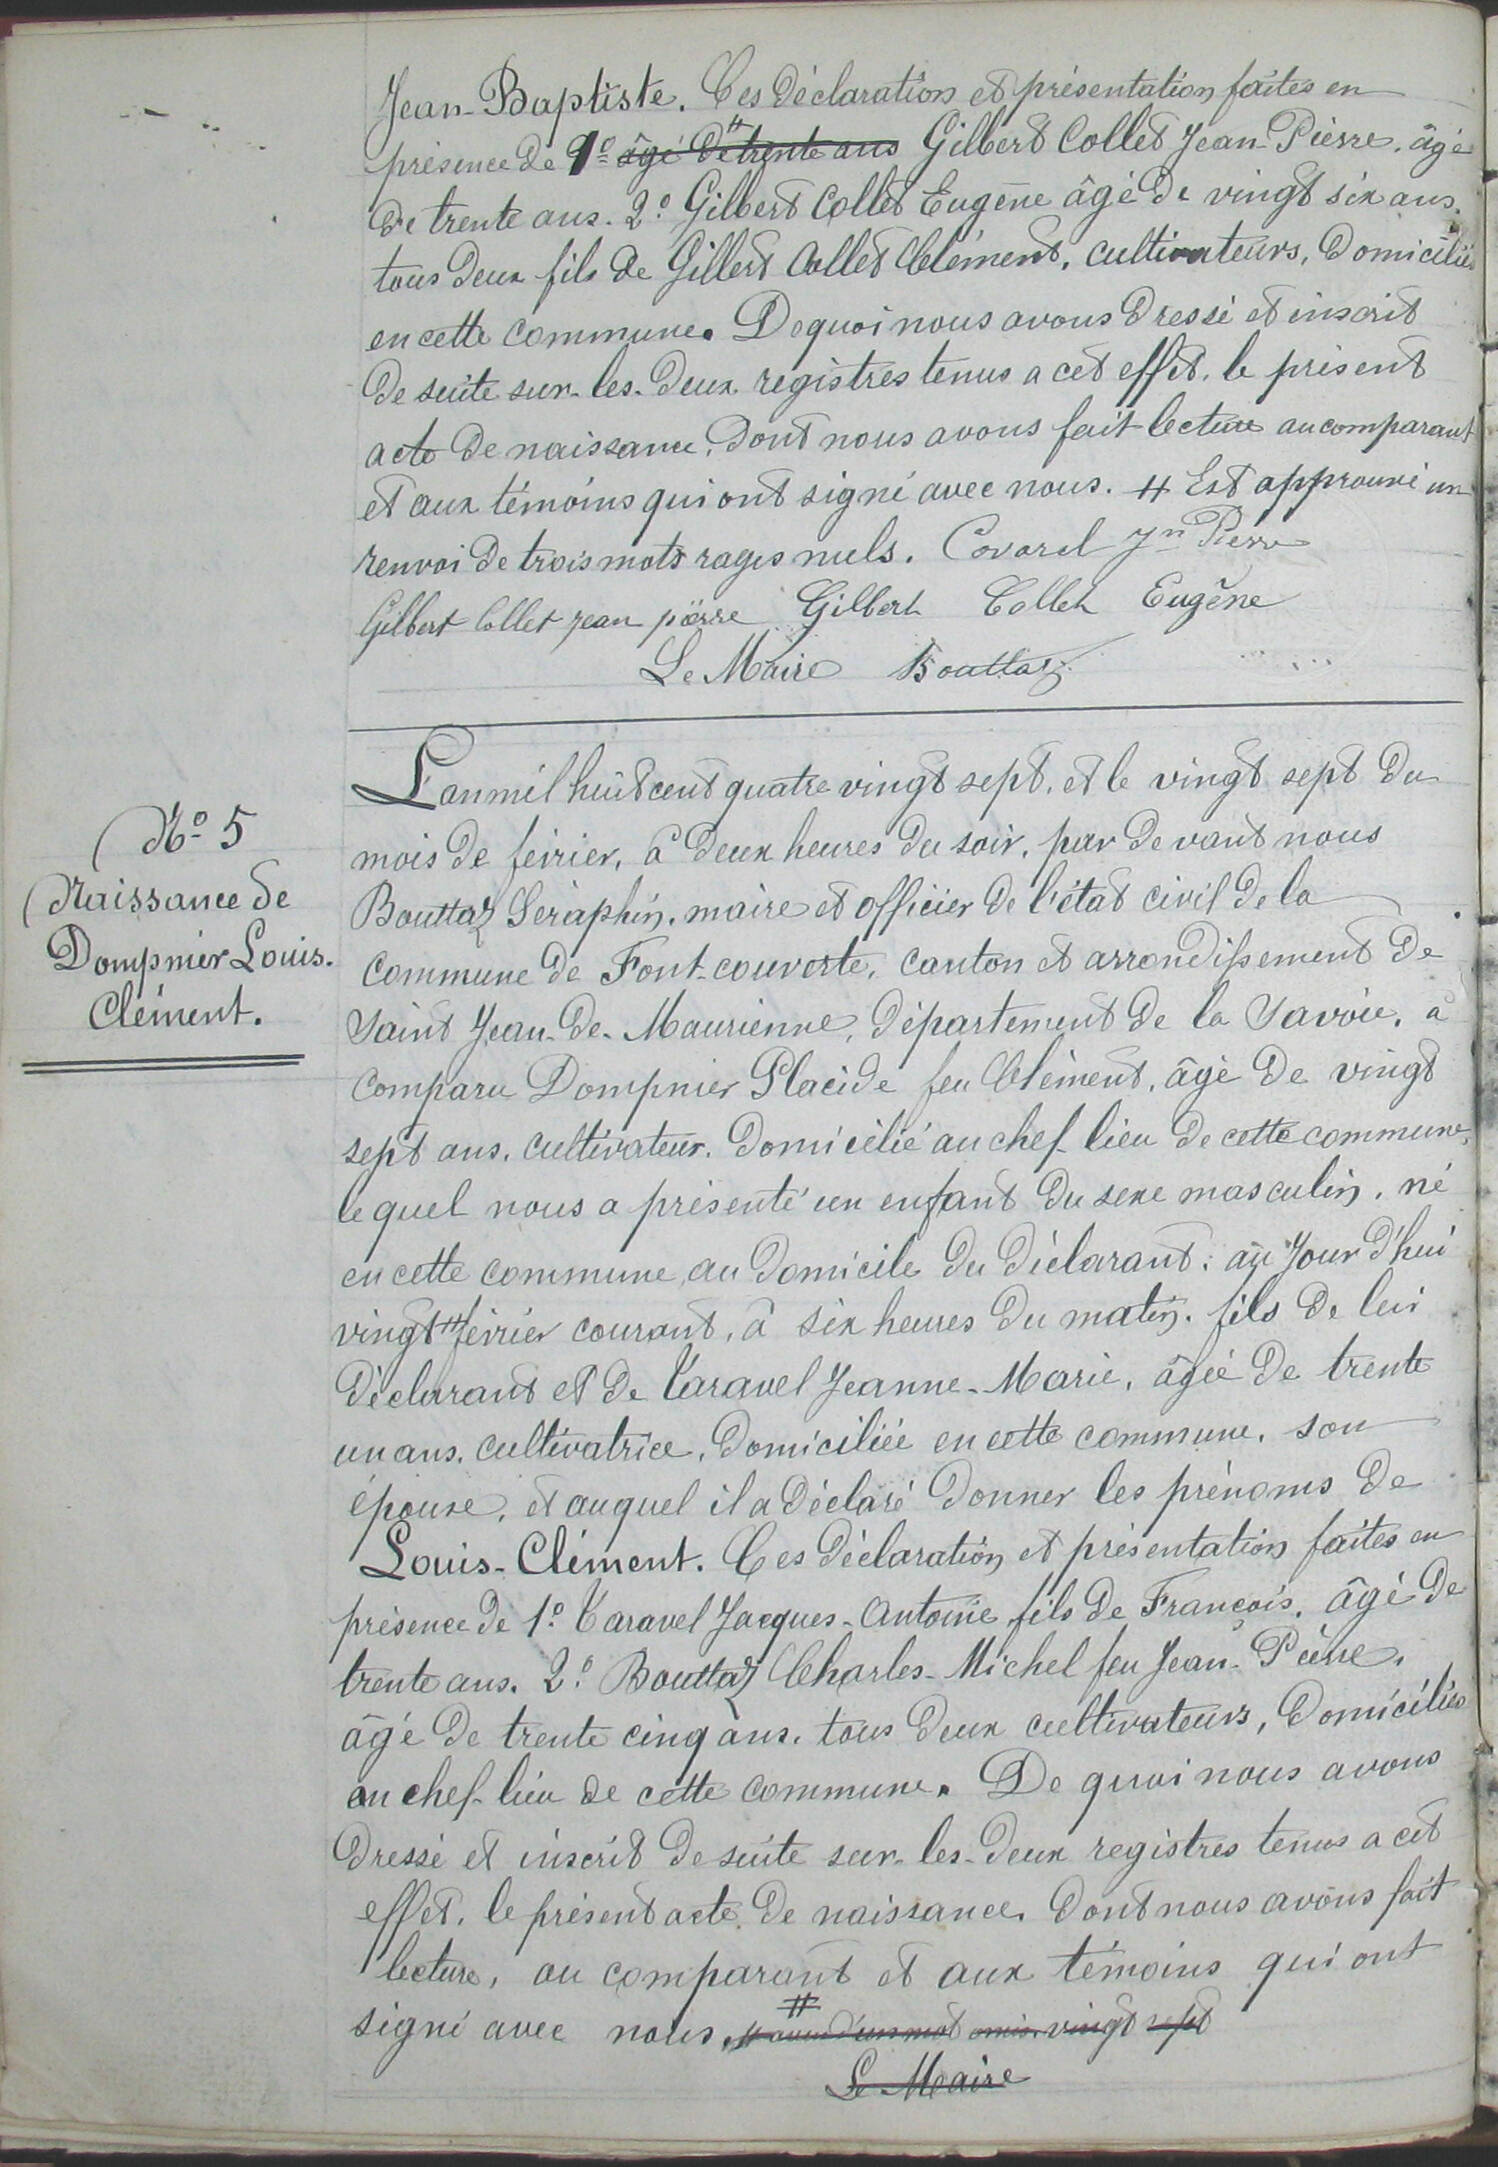 Jean-Baptiste. Ces déclaration et présentation faites en
présence de 1º âgé de trente ans Gilbert Collet Jean-Pierre. âgé
de trente ans. 2º Gilbert Collet Eugène âgé de vingt six ans.
tous deux fils de Gilbert Collet Clément, cultivateurs, domiciliés
en cette commune. De quoi nous avons dressé et inscrit
de suite sur-les-deux registres tenus a cet effet, le présent
acte de naissance, dont nous avons fait lecture au comparant
et aux témoins qui ont signé avec nous. # Est approuvé un
renvoi de trois mots rayés nuls. Covarel Jn Pierre
Gilbert Collet jean pierre Gilbert Collet Eugène
Le Maire Bouttaz
Nº 5
Naissance de
Dompnier Louis.
Clément.
L'an mil huit cent quatre vingt sept, et le vingt sept du
mois de février, à deux heures du soir, par devant nous
Bouttaz Séraphin, maire et officier de l'état civil de la
commune de Font-couverte, canton et arrondissement de
Saint Jean-de-Maurienne, département de la Savoie, a
comparu Dompnier Placide feu Clément, âgé de vingt
sept ans, cultivateur, domicilié au chef-lieu de cette commune,
lequel nous a présenté un enfant du sexe masculin, né
en cette commune au domicile du déclarant: aujourd'hui
vingt # février courant, à six heures du matin, fils de lui
déclarant et de Taravel Jeanne-Marie, âgée de trente
un ans, cultivatrice, domiciliée en cette commune, son
épouse, et auquel il a déclaré donner les prénoms de
Louis-Clément. Ces déclaration et présentation faites en
présence de 1º Taravel Jacques-Antoine fils de François, âgé de
trente ans. 2º Bouttaz Charles-Michel feu Jean-Pierre,
âgé de trente cinq ans, tous deux cultivateurs, domiciliés
au chef-lieu de cette commune. De quoi nous avons
dressé et inscrit de suite sur-les-deux registres tenus a cet
effet, le présent acte de naissance, dont nous avons fait
lecture, au comparant et aux témoins qui ont
signé avec nous. # d'un mot omis. vingt sept
Le Maire